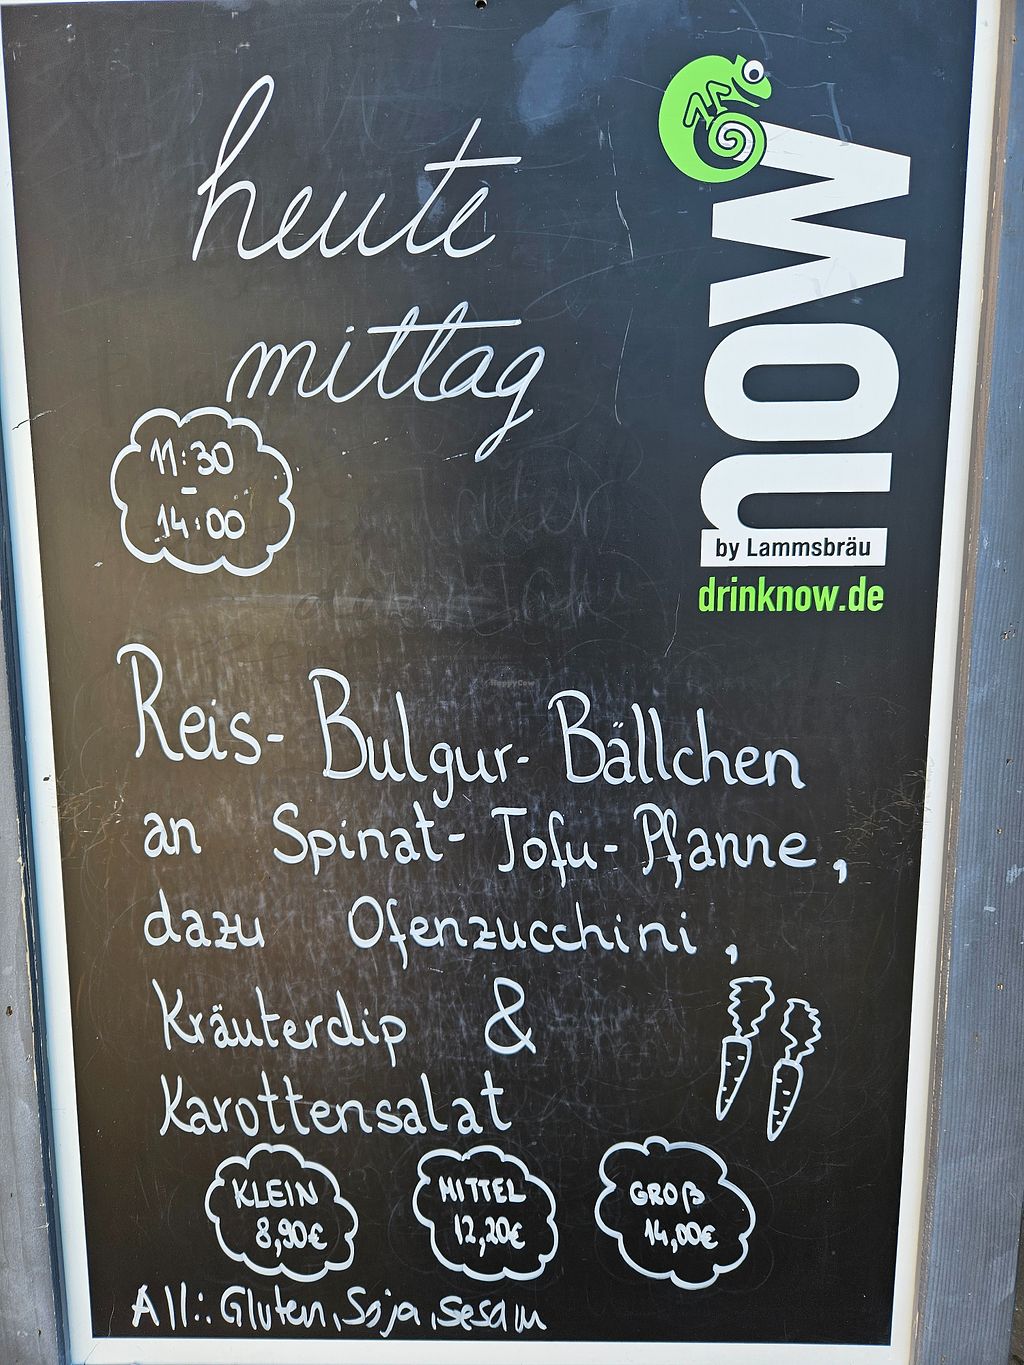 heute
mittag
11:30
-
14:00
now
by Lammsbräu
drinknow.de
HappyCow
Reis- Bulgur- Bällchen
an Spinat- Tofu- Pfanne,
dazu Ofenzucchini,
Kräuterdip &
Karottensalat
KLEIN
8,90€
MITTEL
12,20€
GROß
14,00€
All.: Gluten, Soja, Sesam